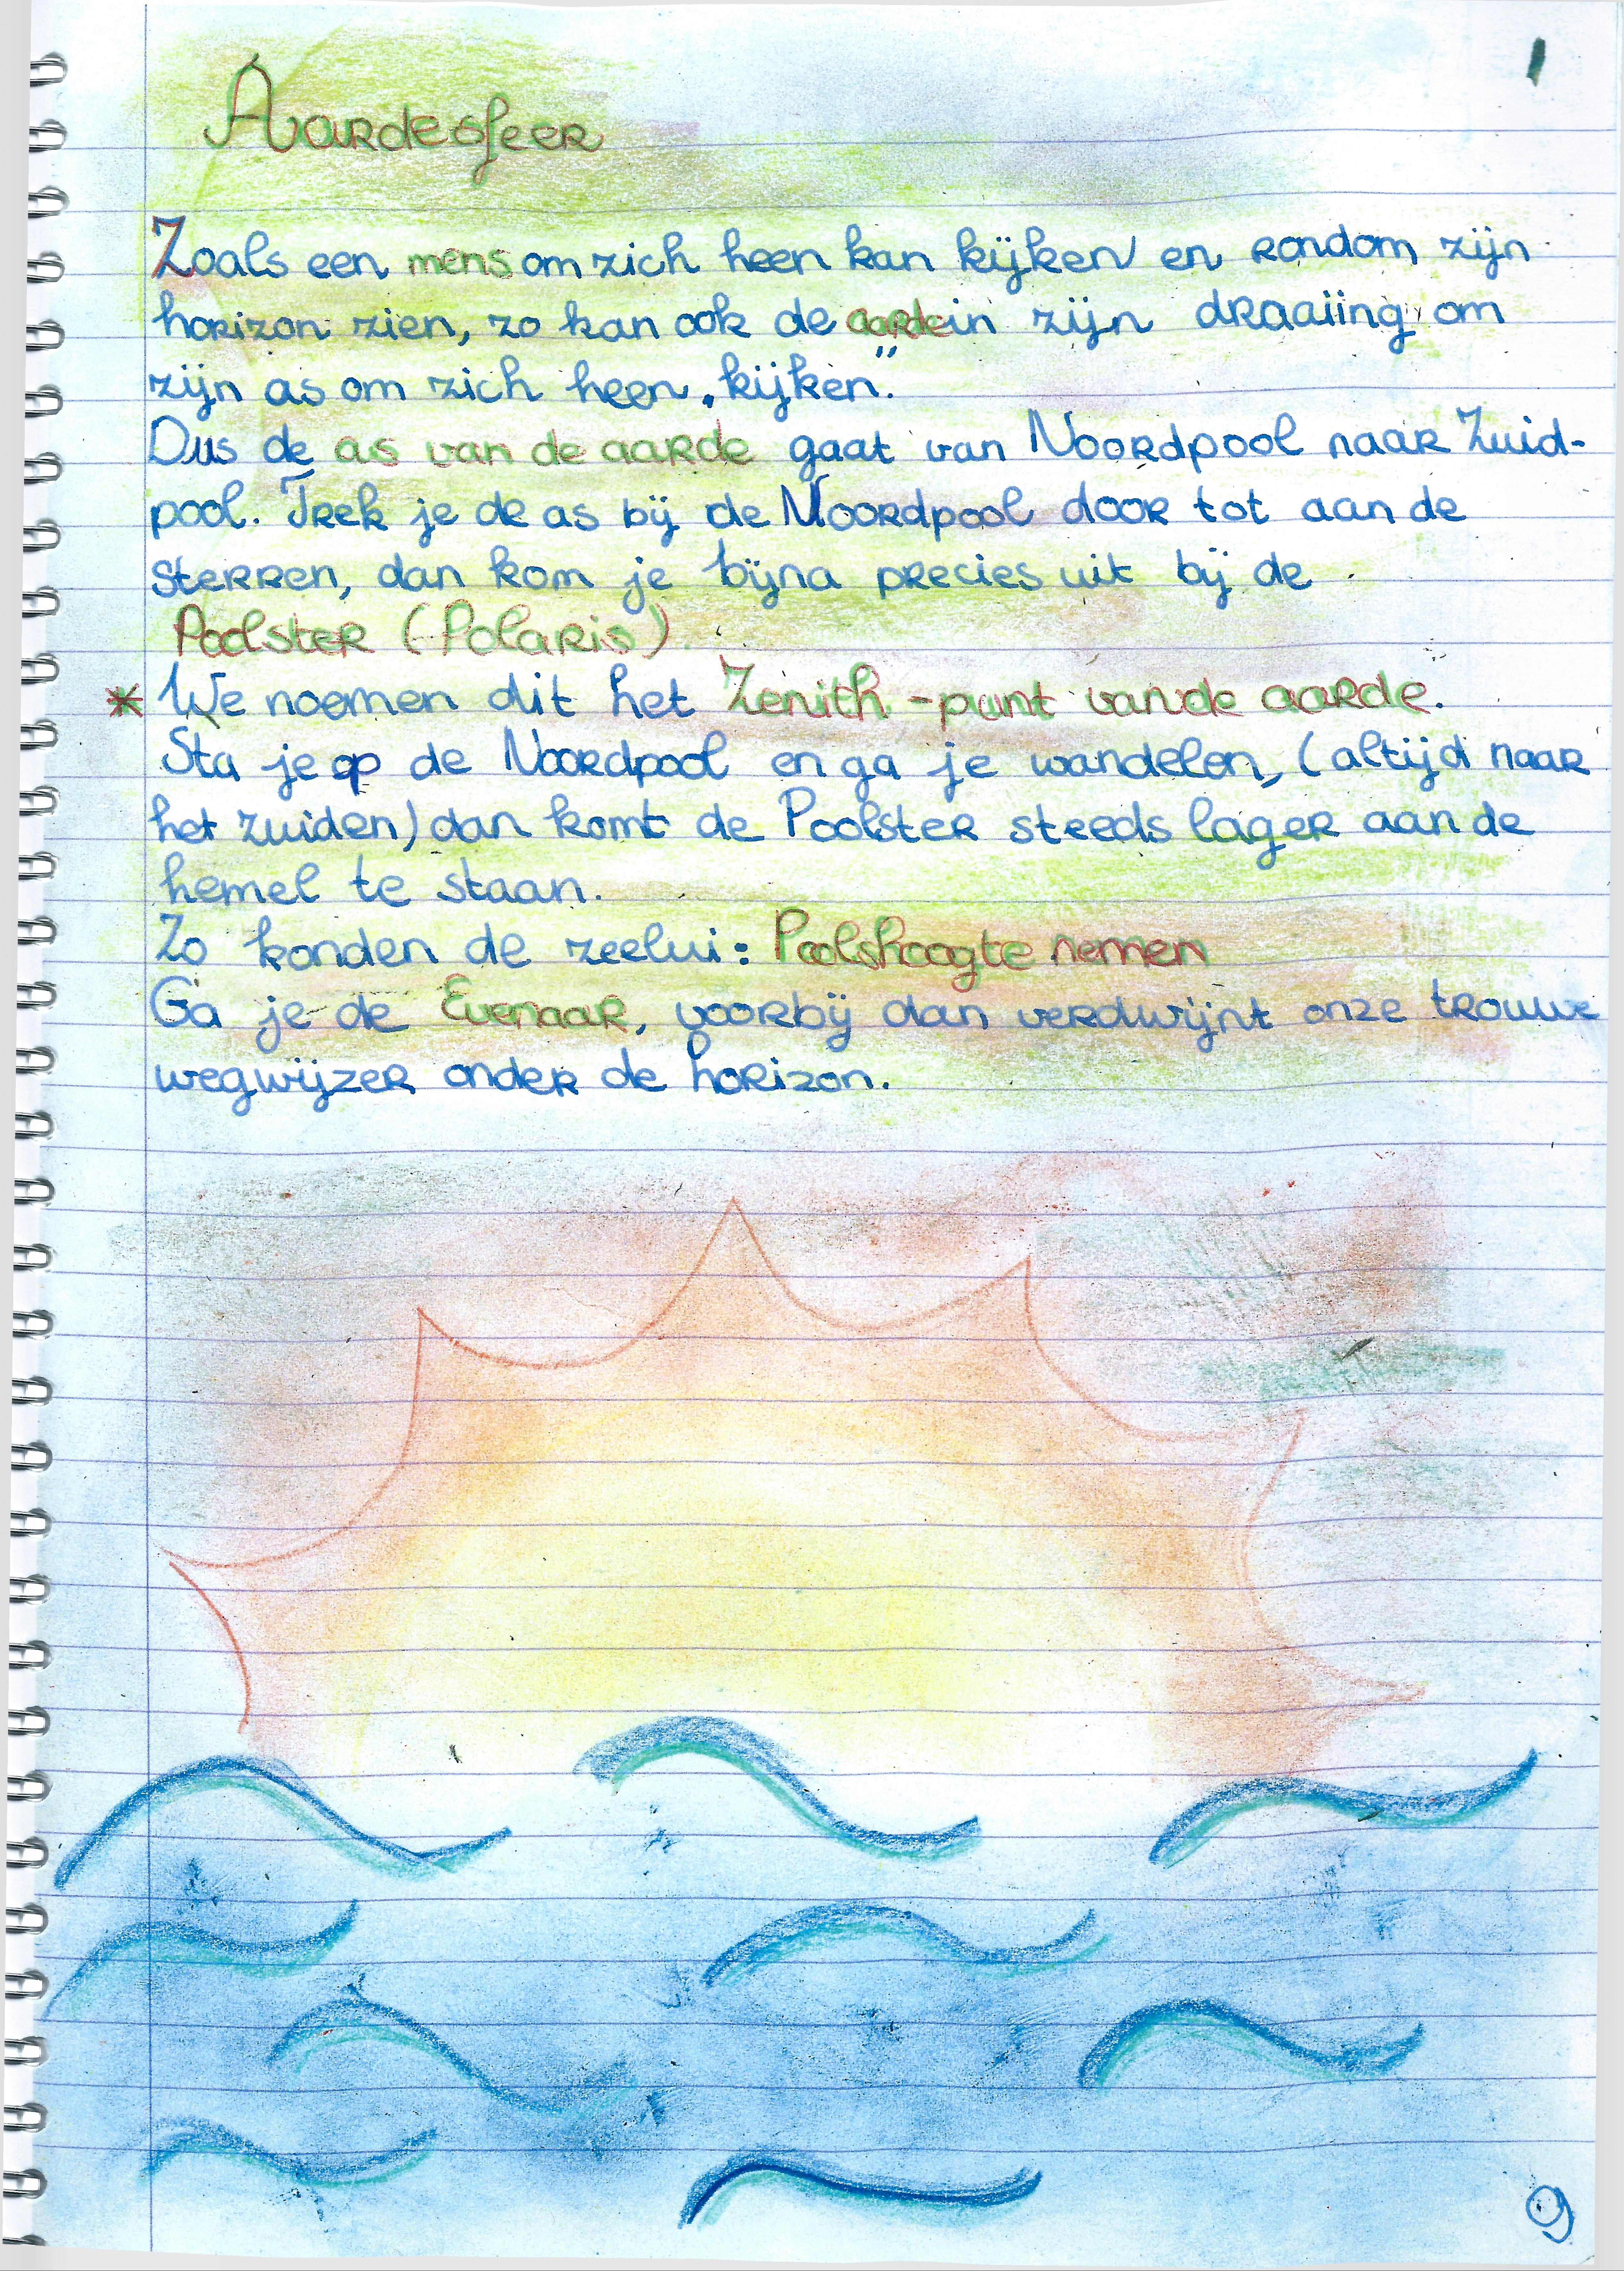 Aardesfeer
Zoals een mens om zich heen kan kijken en rondom zijn
horizon zien, zo kan ook de aarde in zijn draaiing om
zijn as om zich heen „kijken”.
Dus de as van de aarde gaat van Noordpool naar Zuid-
pool. Trek je de as bij de Noordpool door tot aan de
sterren, dan kom je bijna precies uit bij de
Poolster (Polaris).
* We noemen dit het Zenith-punt van de aarde.
Sta je op de Noordpool en ga je wandelen, (altijd naar
het zuiden) dan komt de Poolster steeds lager aan de
hemel te staan.
Zo konden de zeelui: Poolshoogte nemen
Ga je de Evenaar, voorbij dan verdwijnt onze trouwe
wegwijzer onder de horizon.
9